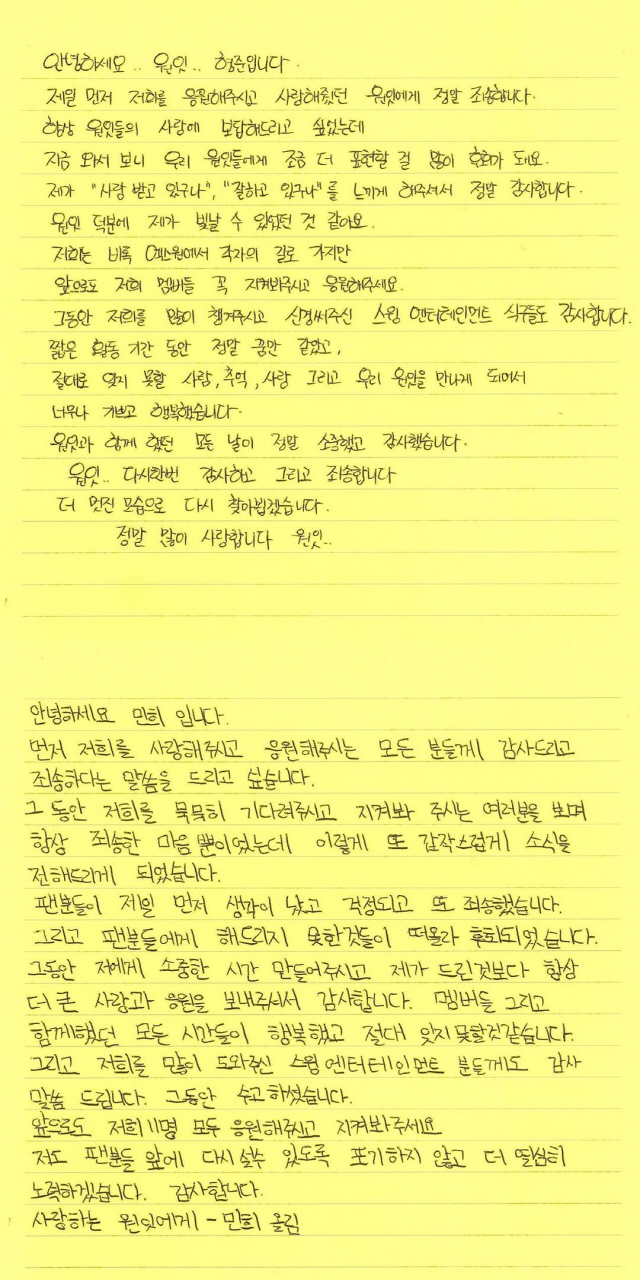 안녕하세요.. 원잇.. 형준입니다.
제일 먼저 저희를 응원해주시고 사랑해줬던 원잇에게 정말 죄송합니다.
항상 원잇들의 사랑에 보답해드리고 싶었는데
지금 와서 보니 우리 원잇들에게 조금 더 표현할 걸 많이 후회가 돼요.
제가 "사랑 받고 있구나", "잘하고 있구나"를 느끼게 해주셔서 정말 감사합니다.
원잇 덕분에 제가 빛날 수 있었던 것 같아요.
저희는 비록 엑스원에서 각자의 길로 가지만
앞으로도 저희 멤버들 꼭 지켜봐주시고 응원해주세요.
그동안 저희를 많이 챙겨주시고 신경써주신 스윙 엔터테인먼트 식구들도 감사합니다.
짧은 활동 기간 동안 정말 꿈만 같았고,
절대로 잊지 못할 사람, 추억, 사랑 그리고 우리 원잇을 만나게 되어서
너무나 기쁘고 행복했습니다.
원잇과 함께 했던 모든 날이 정말 소중했고 감사했습니다.
원잇.. 다시한번 감사하고 그리고 죄송합니다
더 멋진 모습으로 다시 찾아뵙겠습니다.
정말 많이 사랑합니다 원잇..
안녕하세요 민희 입니다.
먼저 저희를 사랑해주시고 응원해주시는 모든 분들께 감사드리고
죄송하다는 말씀을 드리고 싶습니다.
그 동안 저희를 묵묵히 기다려주시고 지켜봐 주시는 여러분을 보며
항상 죄송한 마음 뿐이었는데 이렇게 또 갑작스럽게 소식을
전해드리게 되었습니다.
팬분들이 제일 먼저 생각이 났고 걱정되고 또 죄송했습니다.
그리고 팬분들에게 해드리지 못한것들이 떠올라 후회되었습니다.
그동안 저에게 소중한 시간 만들어주시고 제가 드린것보다 항상
더 큰 사랑과 응원을 보내주셔서 감사합니다. 멤버들 그리고
함께했던 모든 시간들이 행복했고 절대 잊지못할것같습니다.
그리고 저희를 많이 도와주신 스윙엔터테인먼트 분들께도 감사
말씀 드립니다. 그동안 수고하셨습니다.
앞으로도 저희 11명 모두 응원해주시고 지켜봐주세요
저도 팬분들 앞에 다시설수 있도록 포기하지 않고 더 열심히
노력하겠습니다. 감사합니다.
사랑하는 원잇에게 - 민희 올림